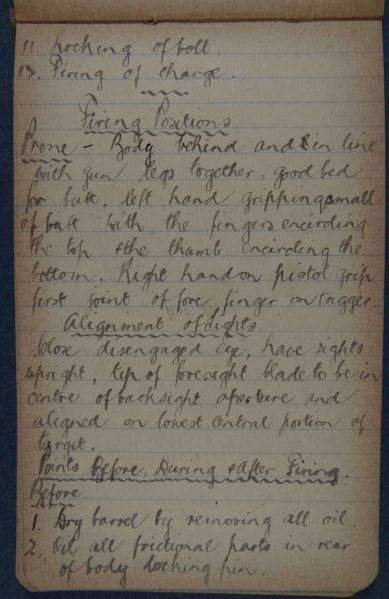 11. Locking of bolt.
12. Firing of charge.
Firing Positions.
Prone - Body behind and in line
with gun, legs together, good bed
for butt, left hand gripping small
of butt with the fingers encircling
the top & the thumb encircling the
bottom. Right hand on pistol grip
first joint of fore finger on trigger.
Alignment of Sights
Close disengaged eye, have sights
upright, tip of foresight blade to be in
centre of backsight aperture and
aligned on lowest central portion of
target.
Points Before, During & After Firing.
Before
1. Dry barrel by removing all oil.
2. Oil all frictional parts in rear
of body locking pin.